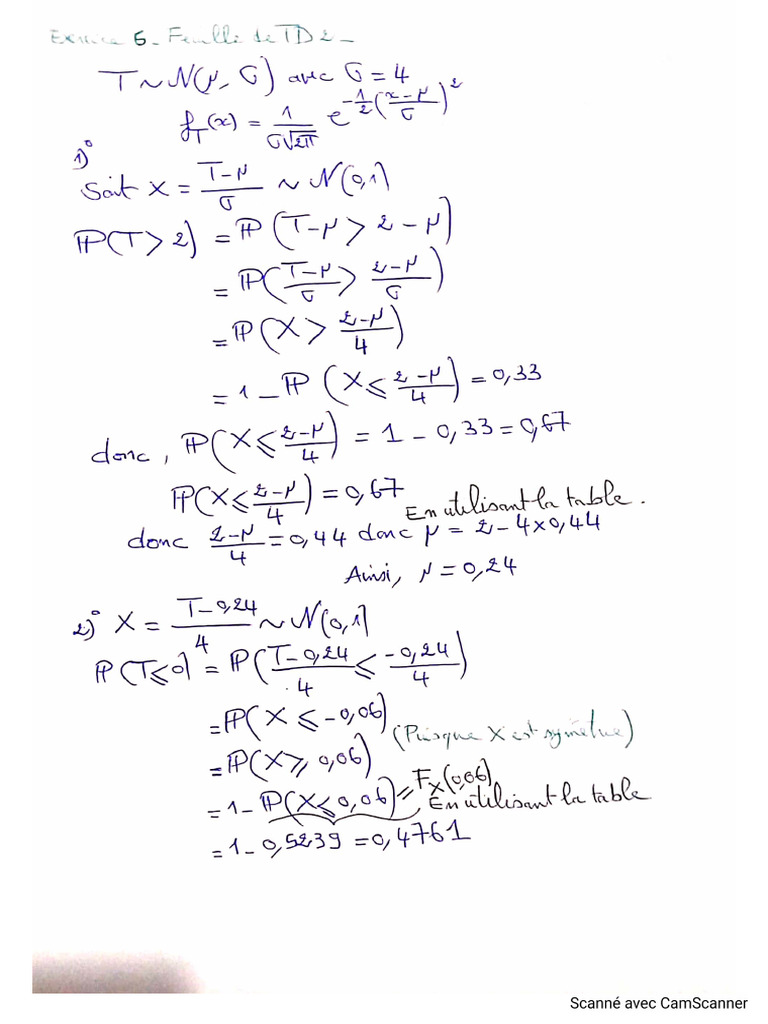 Exercice 6 - Feuille de TD 2 -
T ~ N(μ, σ) avec σ = 4
f_T(x) = 1/(σ√2π) e^(-1/2((x-μ)/σ)^2)
1)°
Soit X = (T-μ)/σ ~ N(0,1)
ℙ(T > 2) = ℙ(T-μ > 2-μ)
= ℙ((T-μ)/σ > (2-μ)/σ)
= ℙ(X > (2-μ)/4)
= 1 - ℙ(X ⩽ (2-μ)/4) = 0,33
donc, ℙ(X ⩽ (2-μ)/4) = 1 - 0,33 = 0,67
ℙ(X ⩽ (2-μ)/4) = 0,67 En utilisant la table.
donc (2-μ)/4 = 0,44 donc μ = 2 - 4×0,44
Ainsi, μ = 0,24
2)° X = (T-0,24)/4 ~ N(0,1)
ℙ(T⩽0) = ℙ((T-0,24)/4 ⩽ (-0,24)/4)
= ℙ(X ⩽ -0,06) (Puisque X est symétrique)
= ℙ(X ⩾ 0,06)
= 1 - ℙ(X ⩽ 0,06) = F_X(0,06) En utilisant la table
= 1 - 0,5239 = 0,4761
Scanné avec CamScanner